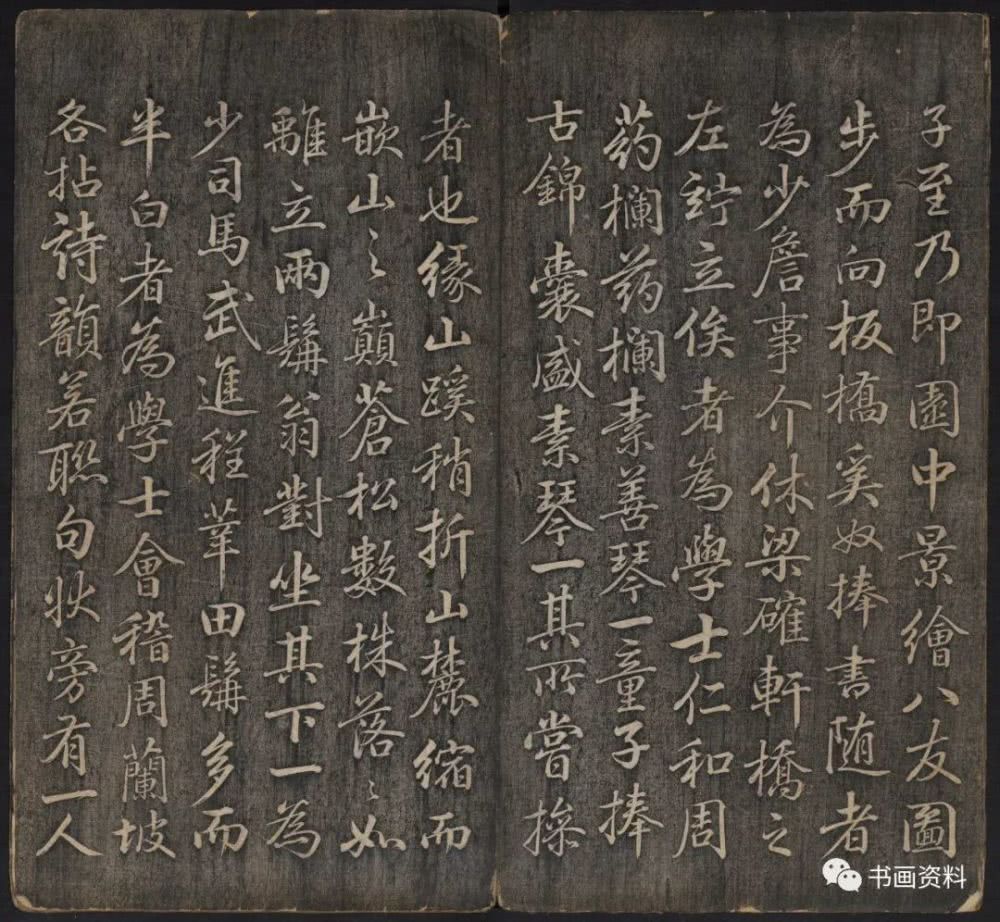 子至乃即園中景繪八友圖
步而向板橋奚奴捧書随者
為少詹事介休梁確軒橋之
左竚立俟者為學士仁和周
药欄药欄素善琴一童子捧
古錦囊盛素琴一其所嘗操
者也緣山蹊稍折山麓縮而
嵌山之巔蒼松數株落々如
離立兩鬅翁對坐其下一為
少司馬武進程莘田鬅多而
半白者為學士會稽周蘭坡
各拈詩韻若聯句狀旁有一人
书画资料